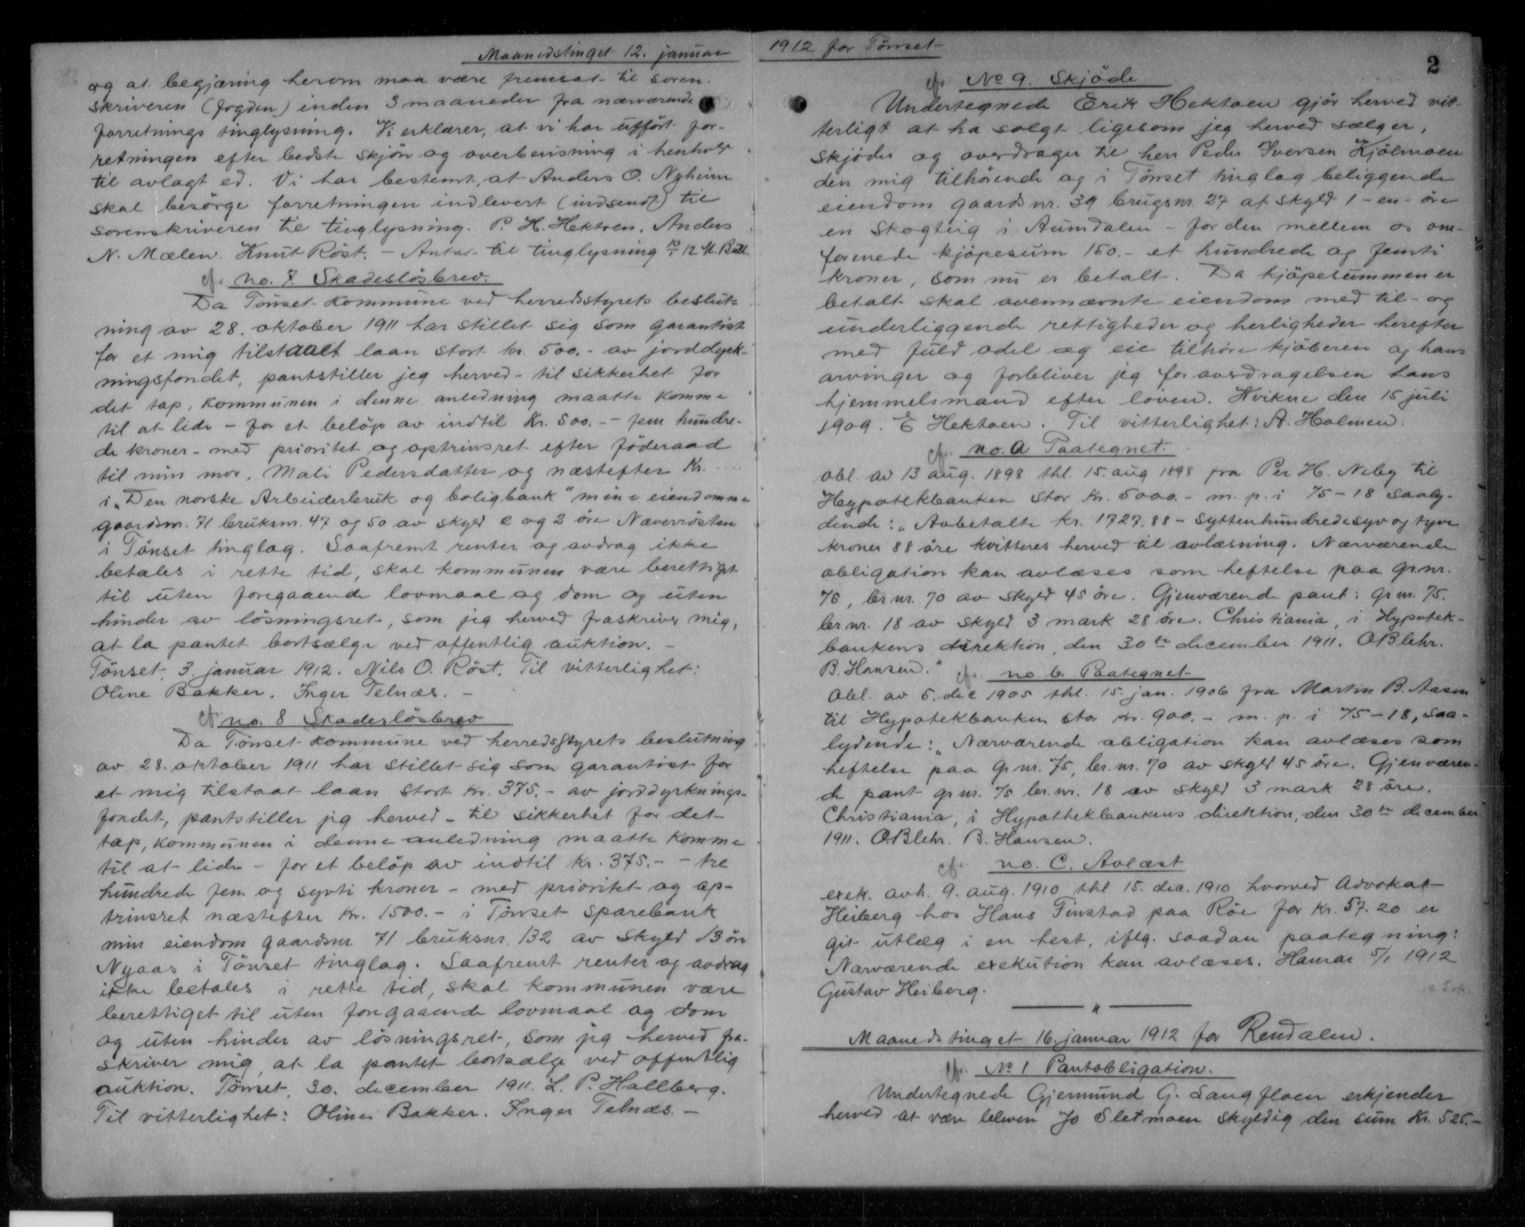 Maanedstinget 12. januar 1912 for Tönset
og at begjæring herom maa være fremsat til soren-
skriveren (fogden) inden 3 maaneder fra nærværende
forretnings tinglysning. Vi erklærer, at vi har utfört for-
retningen efter bedste skjön og overbevisning i henhold
til avlagt ed. Vi har bestemt, at Anders O. Nyheim
skal besörge forretningen indlevert (indsendt) til
sorenskriveren til tinglysning. P. H. Hektoen. Anders
N. Mælen. Knut Röst. – Antat til tinglysning 12
cf. no. 7 Skadeslösbrev.
Da Tönset kommune ved herredsstyrets beslut-
ning av 28. oktober 1911 har stillet sig som garantist
for et mig tilstaaet laan stort kr. 500.- av jorddyrk-
ningsfondet, pantstiller jeg herved - til sikkerhet for
det tap, kommunen i denne anledning maatte komme
til at lide - for et belöp av indtil kr. 500.- - fem hundre-
de kroner - med prioritet og optrinsret efter föderaad
til min mor, Mali Pedersdatter og næstefter kr.
i "Den norske Arbeiderbruk og boligbank" mine eiendomme
gaardsnr. 71 bruksnr. 47 og 50 av skyld 2 og 2 öre Næverrösten
i Tönset tinglag. Saafremt renter og avdrag ikke
betales i rette tid, skal kommunen være berettiget
til uten foregaaende lovmaal og dom og uten
hinder av lösningsret, som jeg herved fraskriver mig,
at la pantet bortsælge ved offentlig auktion. -
Tönset, 3. januar 1912. Nils O. Röst. Til vitterlighet:
Oline Bakker. Inger Telnæs. -
cf. no. 8 Skadeslösbrev
Da Tönset kommune ved herredsstyrets beslutning
av 28. oktober 1911 har stillet sig som garantist for
et mig tilstaat laan stort kr. 375.- av jorddyrknings-
fondet, pantstiller jeg herved - til sikkerhet for det
tap, kommunen i denne anledning maatte komme
til at lide - for et belöp av indtil kr. 375.- - tre
hundrede fem og sytti kroner - med prioritet og op-
trinsret næstefter kr. 1500.- i Tönset Sparebank
min eiendom gaardsnr. 71 bruksnr. 132 av skyld 13 öre
Nyaas i Tönset tinglag. Saafremt renter og avdrag
ikke betales i rette tid, skal kommunen være
berettiget til uten foregaaende lovmaal og dom
og uten hinder av lösningsret, som jeg herved fra-
skriver mig, at la pantet bortsælge ved offentlig
auktion. Tönset, 30. december 1911. L. P. Hallberg.
Til vitterlighet: Oline Bakker. Inger Telnæs. -
2
cf. No 9. Skjöde
Undertegnede Erik Hektoen gjör herved vit-
terligt at ha solgt ligesom jeg herved sælger,
skjöder og overdrager til herr Peder Iversen Kjölmoen
den mig tilhörende og i Tönset tinglag beliggende
eiendom gaards nr. 39 brugsnr. 27 af skyld 1 - en - öre
en Skogteig i Aumdalen - for den mellem os om-
forenede kjöpesum 150.- et hundrede og femti
kroner, som nu er betalt. Da kjöpesummen er
betalt skal ovennævnte eiendom med til- og
underliggende rettigheder og herligheder herefter
med fuld odel og eie tilhöre kjöberen og hans
arvinger og forbliver jeg for overdragelsen hans
hjemmelsmand efter loven. Kvikne den 15 juli
1909. E Hektoen. Til vitterlighet: A. Holmen.
cf. no. a Paategnet
obl. av 13 aug. 1898 thl. 15 aug 1898 fra Per H. Neby til
Hypotekbanken stor kr. 5000.- m. p. i 75-18 saaly-
dende: "Avbetalte kr. 1727.88 - syttenhundredesyvogtyve
kroner 88 öre kvitteres herved til avlæsning. Nærværende
obligation kan avlæses som heftelse paa gr.nr.
75, br.nr. 70 av skyld 45 öre. Gjenværende pant: gr.nr. 75.
br.nr. 18 av skyld 3 mark 28 öre. Christiania, i Hypotek-
bankens direktion, den 30te december 1911. O Blehr.
B. Hansen."
cf. no b. Paategnet
Obl. av 5. dec 1905 thl. 15. jan. 1906 fra Martin B. Aasen
til Hypotekbanken stor kr. 900.- m. p. i 75-18, saa-
lydende: "Nærværende obligation kan avlæses som
heftelse paa gr.nr. 75, br.nr. 70 av skyld 45 öre. Gjenværen-
de pant gr.nr. 75 br.nr. 18 av skyld 3 mark 28 öre.
Christiania, i Hypothekbankens direktion, den 30te december
1911. O. Blehr. B. Hansen.
cf. no. c. Avlæst
exek. avh. 9. aug. 1910 thl 15. dec. 1910 hvorved Advokat
Heiberg hos Hans Finstad paa Röe for kr. 57.20 er
git utlæg i en hest, iflg. saadan paategning:
Nærværende exekution kan avlæses. Hamar 5/1 1912
Gustav Heiberg.
Maanedstinget 16. januar 1912 for Rendalen.
cf. No 1 Pantobligation.
Undertegnede Gjermund G. Langfloen erkjender
herved at være bleven Jo Sletmoen skyldig den sum kr. 525.-